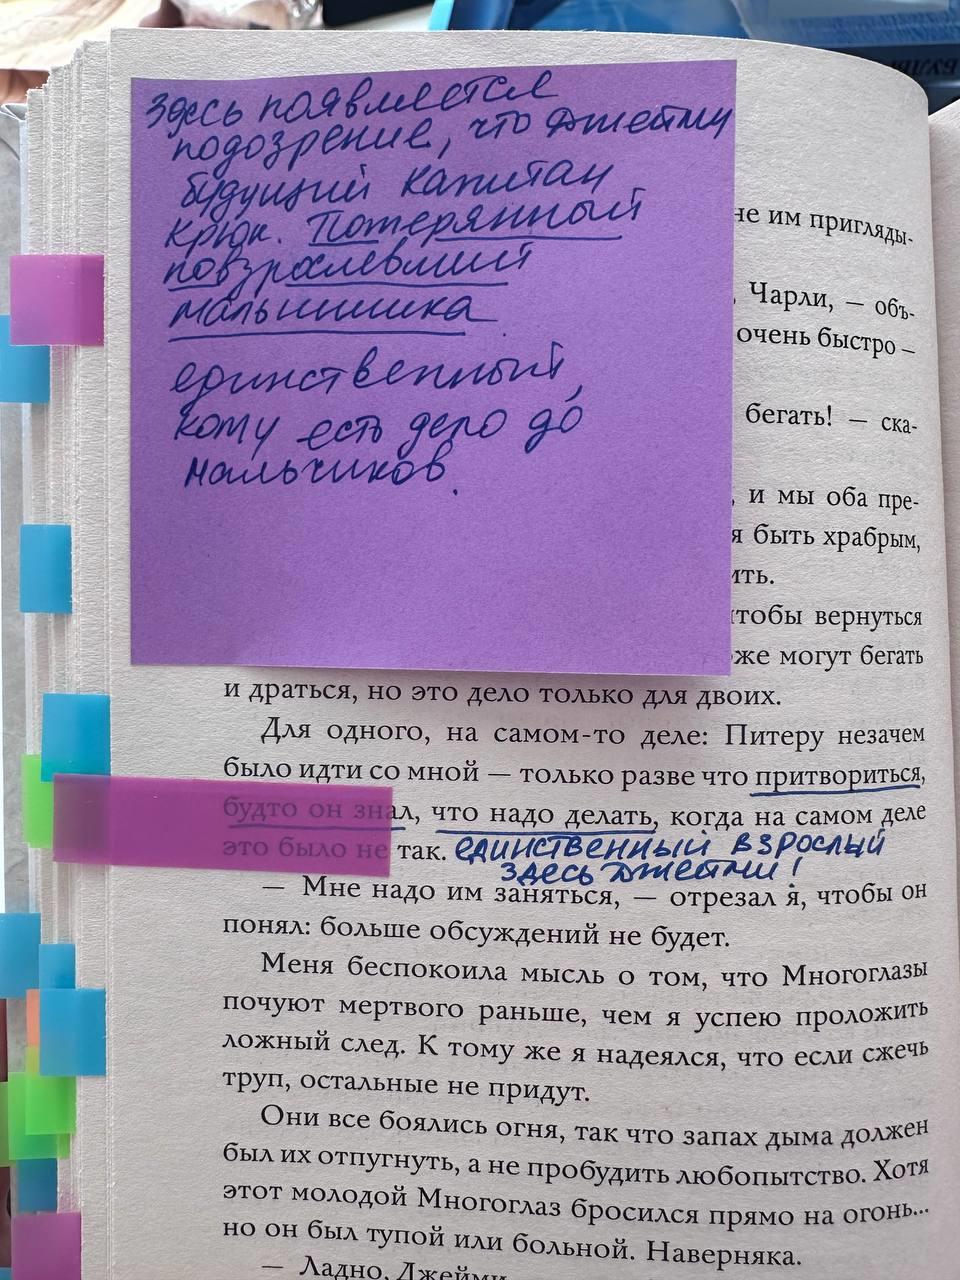 здесь появляется
подозрение, что Джейми
будущий капитан
Крюк. Потерянный
повзрослевший
мальчишка
единственный,
кому есть дело до
мальчиков.
не им пригляды-
, Чарли, — объ-
очень быстро –
бегать! — ска-
, и мы оба пре-
я быть храбрым,
ить.
чтобы вернуться
оже могут бегать
и драться, но это дело только для двоих.
Для одного, на самом-то деле: Питеру незачем
было идти со мной — только разве что притвориться,
будто он знал, что надо делать, когда на самом деле
это было не так. единственный взрослый
здесь Джейми!
— Мне надо им заняться, — отрезал я, чтобы он
понял: больше обсуждений не будет.
Меня беспокоила мысль о том, что Многоглазы
почуют мертвого раньше, чем я успею проложить
ложный след. К тому же я надеялся, что если сжечь
труп, остальные не придут.
Они все боялись огня, так что запах дыма должен
был их отпугнуть, а не пробудить любопытство. Хотя
этот молодой Многоглаз бросился прямо на огонь...
но он был тупой или больной. Наверняка.
— Ладно, Джейми